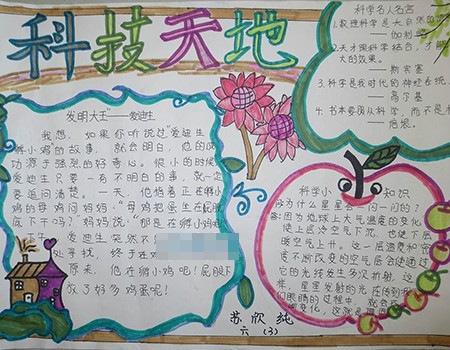 科技天地
发明大王"——爱迪生
我想,如果你听说过"爱迪生
孵小鸡的故事,就会明白,他的成
功源于强烈的好奇心。很小的时候
爱迪生只要一有不明白的事,就一定
要追问清楚。一天,他指着正在孵小
鸡的母鸡问妈妈:"母鸡把蛋坐在屁股
底下干吗?"妈妈说:"那是在孵小鸡
天下午,爱迪生突然不
处寻找,终于在
原来,他在孵小鸡吧!屁股下
放了好多鸡蛋呢!
科学名人名言
1.数理科学是大自然的
——伽利
2.天才跟科学结合,才
大的效果。
——斯宾塞
3.科学是我时代的神经系统
——高尔基
4.书本要员从科学,而不是
——培根
科学小知识
为什么星星会一闪一闪的?
答:因为地球上大气温度的变化
使上层冷空气下沉,也使下层
暖空气上升。这一层温度和密
度不断改变的空气层会使通过
它的光线发生多次折射。这
样,星星发射的光在传到我
们眼睛的过程中,就会
变化,这就是
苏欣纯
六(3)